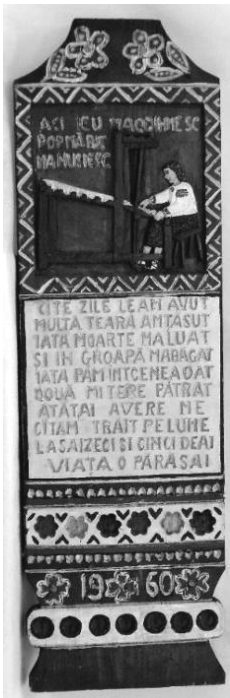 ACI IEU MAODIHNESC
POP MĂRIE
MA NUMESC
CITE ZILE LEAM AVUT
MULTA TEARĂ AMȚASUT
IATA MOARTE MALUAT
SI IN GROAPĂ MABAGAT
IATA PAMINTCENEADAT
DOUĂ MITERE PĂTRAT
ATĂTAI AVERE NE
CÎTAM TRAIT PELUME
LASAIZECI SI CINCI DEAI
VIAȚA O PĂRĂSAI
1960